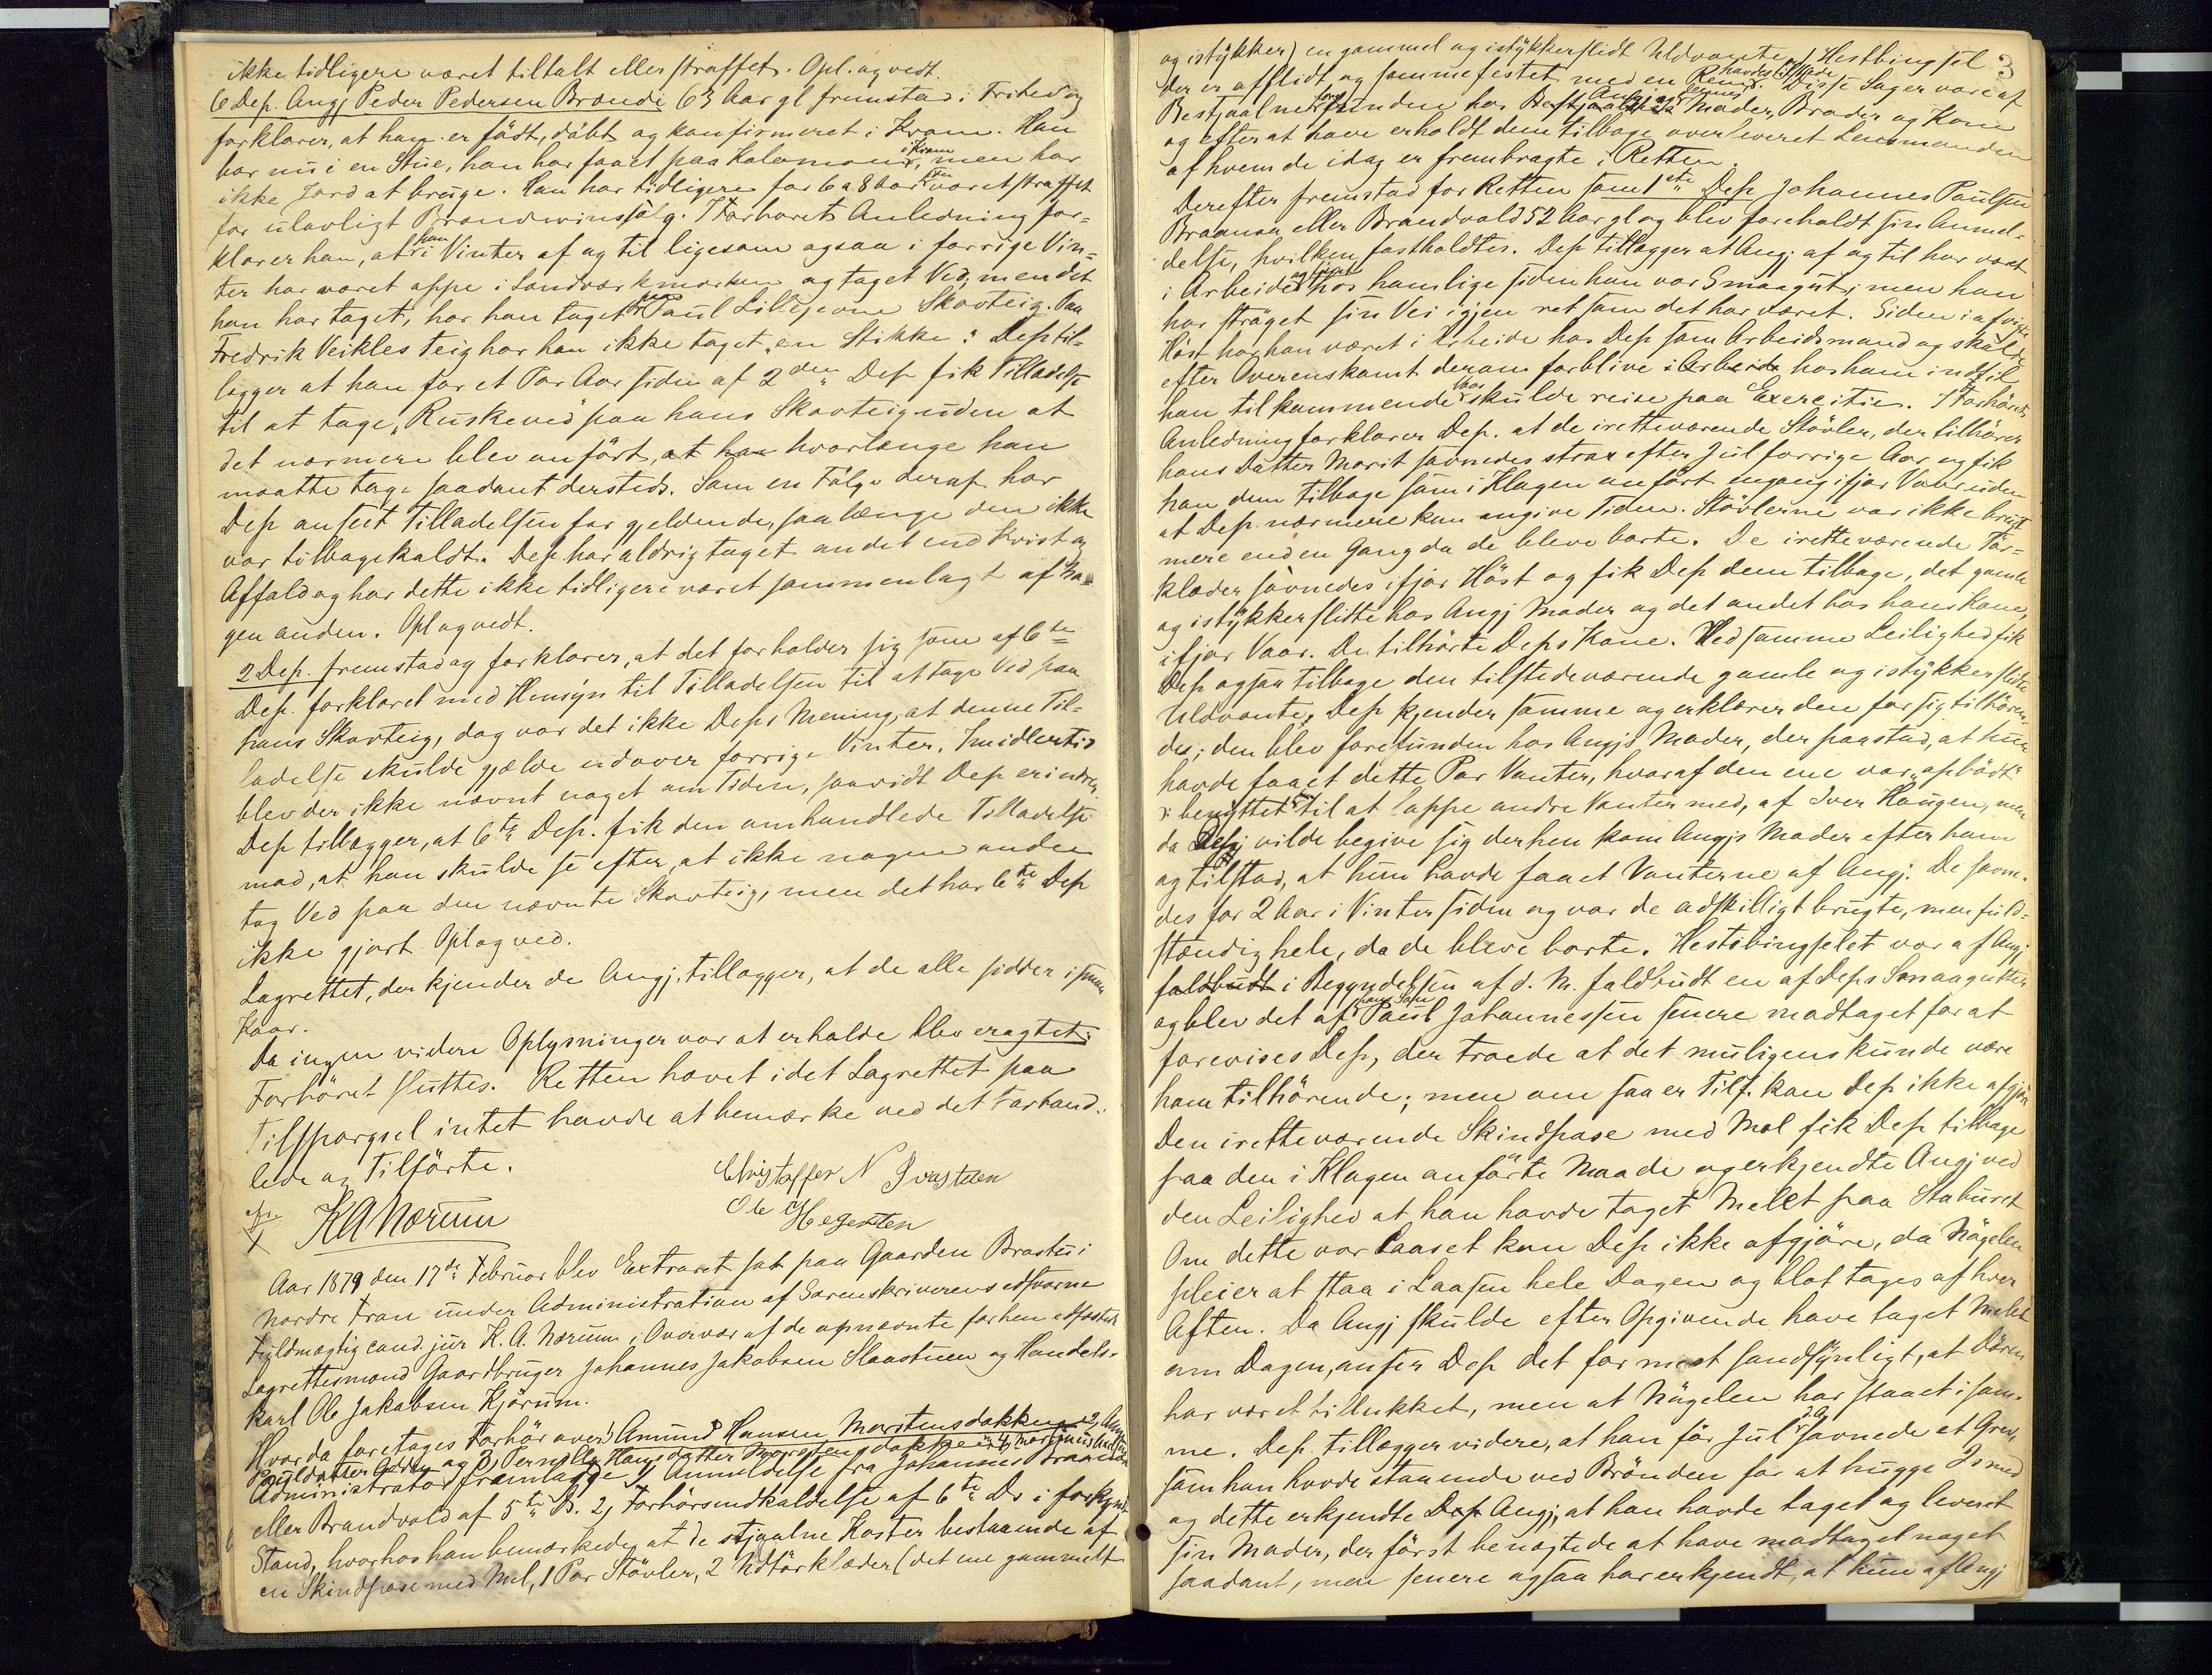 ikke tidligere været tiltalt eller straffet. Opl. og vedt.
6 Dep. Angj Peder Pedersen Brænde 63 Aar gl fremstod i Frihed og
forklarer, at han er født, døbt og konfirmeret i Fron. Han
bor nu i en Stue, han har faaet paa Kolomoen i Fron, men har
ikke Jord at bruge. Han har tidligere for 6 a 8 Aar siden været straffet
for ulovligt Brændevinssalg. I Forhørets Anledning for-
klarer han, at han i Vinter af og til ligesom ogsaa i forrige Vin-
ter har været oppe i Sandværkmarken og taget Ved, men det
han har taget, har han taget paa Paul Lillegevne Skovteig. Paa
Fredrik Veikles Teig har han ikke taget "en Stikke". Dep til-
lægger at han for et Par Aar siden af 2den Dep fik Tilladelse
til at tage "Ruskeved" paa hans Skovteig uden at
det nærmere blev anført, at han hvorlænge han
maatte tage saadant dersteds. Som en Følge deraf har
Dep anseet Tilladelsen for gjeldende, saalænge den ikke
var tilbagekaldt. Dep har aldrig taget andet end Kvist og
Affald og har dette ikke tidligere været sammenlagt af no-
gen anden. Opl og vedt.
2 Dep. fremstod og forklarer, at det forholder sig som af 6te
Dep. forklaret med Hensyn til Tilladelsen til at tage Ved paa
hans Skovteig, dog var det ikke Deps Mening, at denne Til-
ladelse skulde gjælde udover forrige Vinter. Imidlertid
blev der ikke nævnt noget om Tiden, saavidt Dep erindrer.
Dep tillægger, at 6te Dep. fik den omhandlede Tilladelse
mod, at han skulde se efter, at ikke nogen anden
tog Ved paa den nævnte Skovteig, men det har 6te Dep
ikke gjort. Opl og ved.
Lagrettet, der kjender de Angj. tillægger, at de alle sidder i smaa
Kaar.
Da ingen videre Oplysninger var at erholde blev eragtet:
Forhøret sluttes. Retten hævet idet Lagrettet paa
Tilspørgsel intet havde at bemærke ved det Forhand-
lede og Tilførte.
Christoffer N
KANærum Ole
Aar 1879 den 17de Februar blev Extraret sat paa Gaarden Brastu i
Nordre Fron under Administration af Sorenskriverens edsvorne
Fuldmægtig cand. jur K. A. Nærum, i Overvær af de opnævnte forhen edfæstede
Lagrettesmænd Gaardbruger Johannes Jakobsen Slaastuen og Handels-
karl Ole Jakobsen Kjørum.
Hvor da foretages Forhør over 1) Amund Hansen Mortensdokken 2)
Pauldatter og 3) Pernille Hansdatter
Administrator fremlagde 1) Anmeldelse fra Johannes Braanaa
eller Brandvold af 5te ds. 2) Forhørsindkaldelse af 6te ds i forkyndt
Stand, hvorhos han bemærkede, at de stjaalne Koster bestaaende af
en Skindpose med Mel, 1 Par Støvler, 2 Tørklæder (det ene gammelt
3
og istykker) en gammel og istykkerslidt Uldvante,
der er afslidt og sammefestet med en Rem. Disse Sager vare af
Bestjaalne funden hos Angjs Moder, Broder og Kone
og efter at have erholdt dem tilbage overleveret Lensmanden
af hvem de idag er frembragte i Retten.
Derefter fremstod for Retten som 1ste Dep Johannes Paulsen
Braanaa eller Brandvold 52 Aar gl og blev foreholdt sin Anmel-
delse, hvilken fastholdtes. Dep tillægger at Angj af og til har været
i Arbeide og tjent hos ham lige siden han var Smaagut, men han
har strøget sin Vei igjen ret som det har været. Siden i afvigte
Høst har han været i Arbeide hos Dep som Arbeidsmand og skulde
efter Overenskomst derom forblive i Arbeide hos ham indtil
han tilkommende Vaar skulde reise paa Exercitie. I Forhørets
Anledning forklarer Dep. at de iretteværende Støvler, der tilhører
hans Datter Marit savnedes strax efter Jul forrige Aar og fik
han dem tilbage som i Klagen anført engang ifjor Vaar uden
at Dep. nærmere kan angive Tiden. Støvlerne var ikke brugt
mere end en Gang da de bleve borte. De iretteværende Tør-
klæder savnedes ifjor Høst og fik Dep dem tilbage, det gamle
og istykkerslidte hos Angj Moder og det andet hos hans Kone,
ifjor Vaar. De tilhørte Deps Kone. Ved samme Leilighed fik
Dep ogsaa tilbage den tilstedeværende gamle og istykkerslidte
Uldvante, Dep kjender samme og erklærer den for sig tilhøren-
des; den blev forefunden hos Angjs Moder, der paastod, at hun
havde faaet dette Par Vanter, hvoraf den ene var "opbødt"
: benyttet til at lappe andre Vanter med, af Iver Haugen, men
da Dep vilde begive sig derhen kom Angjs Moder efter ham
og tilstod, at hun havde faaet Vanterne af Angj. De savne-
des for 2 Aar i Vinter siden og var de adskilligt brugte, men fuld-
stændig hele, da de bleve borte. Hestebingselet var af Angj
faldbudt i Begyndelsen af d. M. faldbudt en af Deps Smaagutter
og blev det af hans Søn Paul Johannessen senere modtaget for at
forevises Dep, der troede at det muligens kunde være
ham tilhørende; men om saa er Tilf. kan Dep ikke afgjøre
Den iretteværende Skindpose med Mel fik Dep tilbage
paa den i Klagen anførte Maade og erkjendte Angj ved
den Leilighed at han havde taget Melet paa Staburet
Om dette var laaset kan Dep ikke afgjøre, da Nøgelen
pleier at staa i Laasen hele Dagen og blot tages af hver
Aften. Da Angj skulde efter Opgivende have taget Melet
om Dagen, anser Dep det for mest sandsynligt, at Døren
har været tillukket, men at Nøgelen har staaet i sam-
me. Dep. tillægger videre, at han før Jul savnede et Grev,
som han havde staaende ved Brønden for at hugge Is med
og dette erkjendte Dep Angj, at han havde taget og leveret
sin Moder, der først benægtede at have modtaget noget
saadant, men senere ogsaa har erkjendt, at hun af Angj